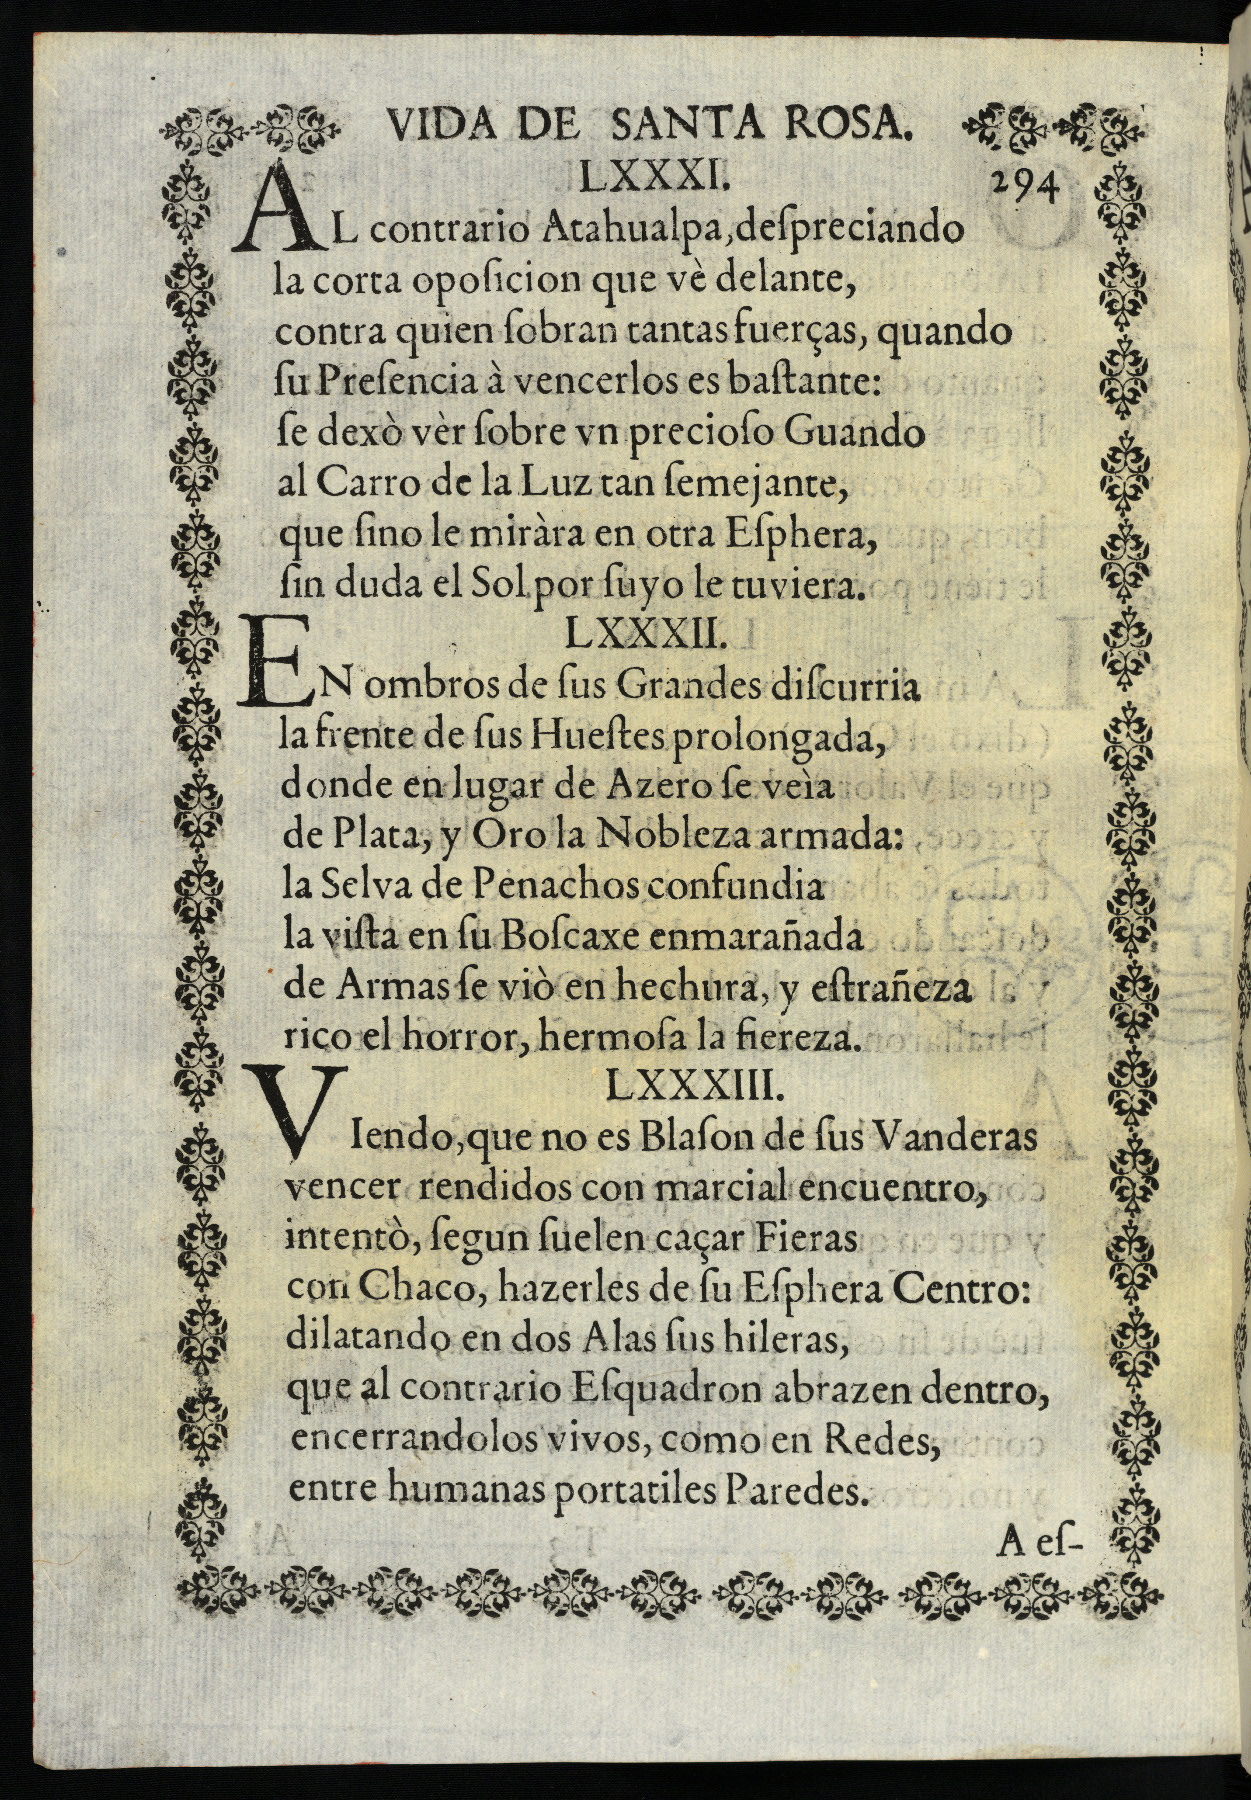 VIDA DE SANTA ROSA.
LXXXI. 294
AL contrario Atahualpa, deſpreciando
la corta opoſicion que vè delante,
contra quien ſobran tantas fuerças, quando
ſu Preſencia à vencerlos es baſtante:
ſe dexò vèr ſobre vn precioſo Guando
al Carro de la Luz tan ſemejante,
que ſino le miràra en otra Eſphera,
ſin duda el Sol por ſuyo le tuviera.
LXXXII.
EN ombros de ſus Grandes diſcurria
la frente de ſus Hueſtes prolongada,
donde en lugar de Azero ſe veìa
de Plata, y Oro la Nobleza armada:
la Selva de Penachos confundia
la viſta en ſu Boſcaxe enmarañada
de Armas ſe viò en hechura, y eſtrañeza
rico el horror, hermoſa la fiereza.
LXXXIII.
VIendo, que no es Blaſon de ſus Vanderas
vencer rendidos con marcial encuentro,
intentò, ſegun ſuelen caçar Fieras
con Chaco, hazerles de ſu Eſphera Centro:
dilatando en dos Alas ſus hileras,
que al contrario Eſquadron abrazen dentro,
encerrandolos vivos, como en Redes,
entre humanas portatiles Paredes.
A eſ-